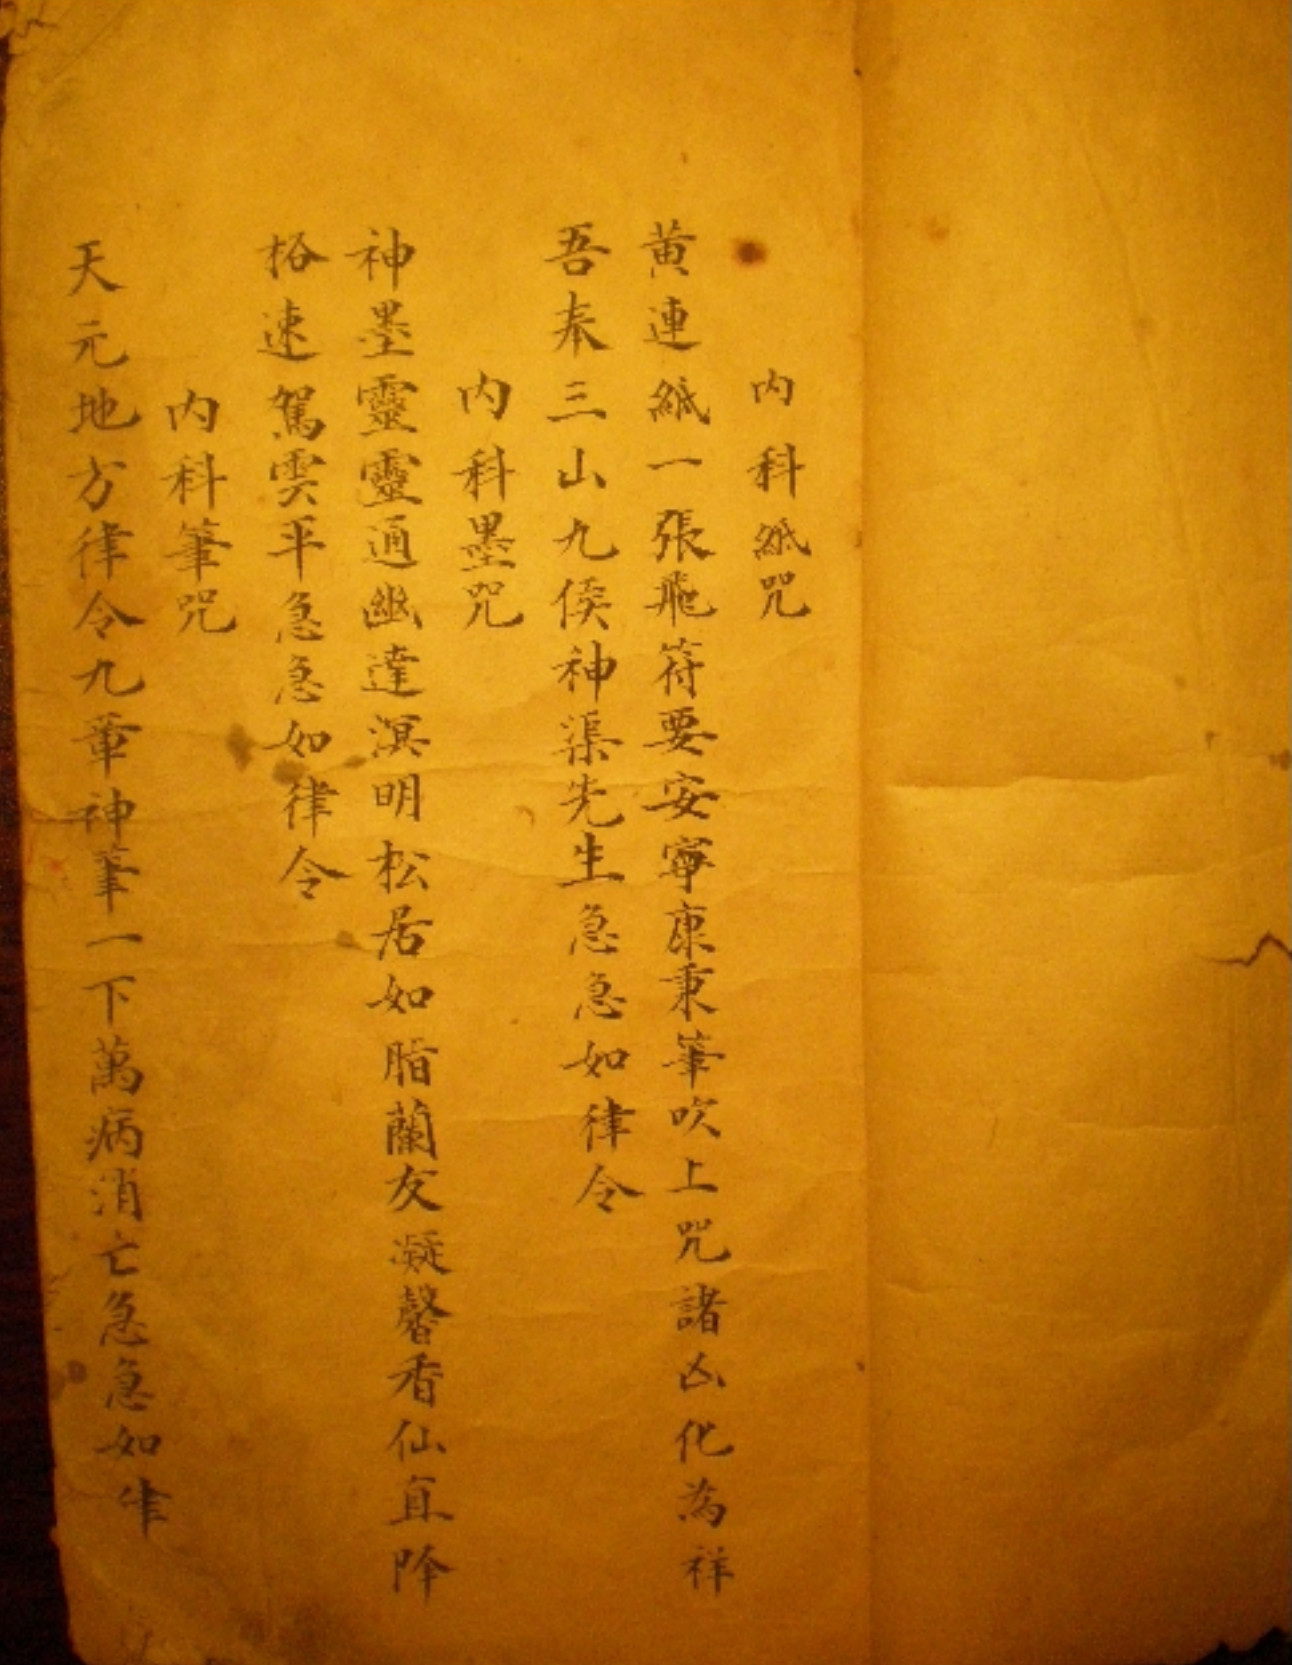 內科紙咒
黄連紙一張飛符要安寧康秉筆吹上咒諸凶化為祥
吾奉三山九侯神渠先生急急如律令
內科墨咒
神墨靈靈通幽達溟明松居如脂蘭友凝馨香仙直降
格速駕雲平急急如律令
內科筆咒
天元地方律令九章神筆一下萬病消亡急急如律